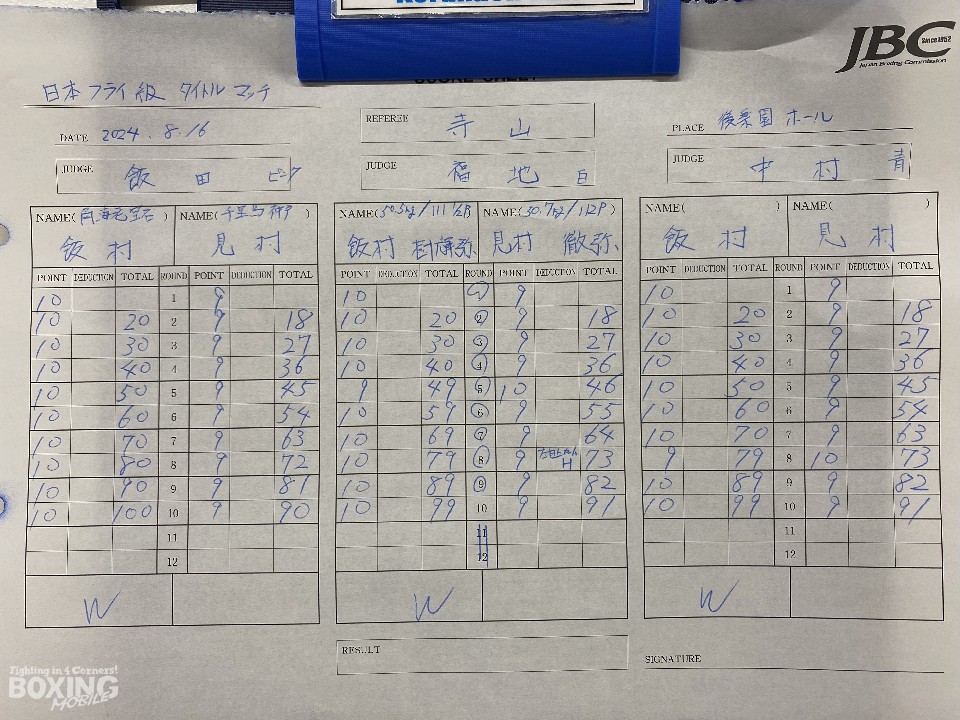 SCORE SHEET
JBC
Since 1952
Japan Boxing Commission
日本フライ級 タイトルマッチ
DATE 2024.8.16
REFEREE 寺山
PLACE 後楽園ホール
JUDGE 飯田 ピンク
JUDGE 福地 白
JUDGE 中村 青
NAME( ) NAME( )
飯村 見村
POINT DEDUCTION TOTAL ROUND POINT DEDUCTION TOTAL
10 1 9
10 20 2 9 18
10 30 3 9 27
10 40 4 9 36
10 50 5 9 45
10 60 6 9 54
10 70 7 9 63
10 80 8 9 72
10 90 9 9 81
10 100 10 9 90
11
12
W
NAME(50.5kg/111 1/2P) NAME(50.7kg/112P)
飯村 樹輝弥 見村 徹弥
POINT DEDUCTION TOTAL ROUND POINT DEDUCTION TOTAL
10 1 9
10 20 2 9 18
10 30 3 9 27
10 40 4 9 36
9 49 5 10 46
10 59 6 9 55
10 69 7 9 64
10 79 8 9 73
10 89 9 9 82
10 99 10 9 91
11
12
W
RESULT
NAME( ) NAME( )
飯村 見村
POINT DEDUCTION TOTAL ROUND POINT DEDUCTION TOTAL
10 1 9
10 20 2 9 18
10 30 3 9 27
10 40 4 9 36
10 50 5 9 45
10 60 6 9 54
10 70 7 9 63
9 79 8 10 73
10 89 9 9 82
10 99 10 9 91
11
12
W
SIGNATURE
Fighting in 4 Corners!
BOXING
MOBILE